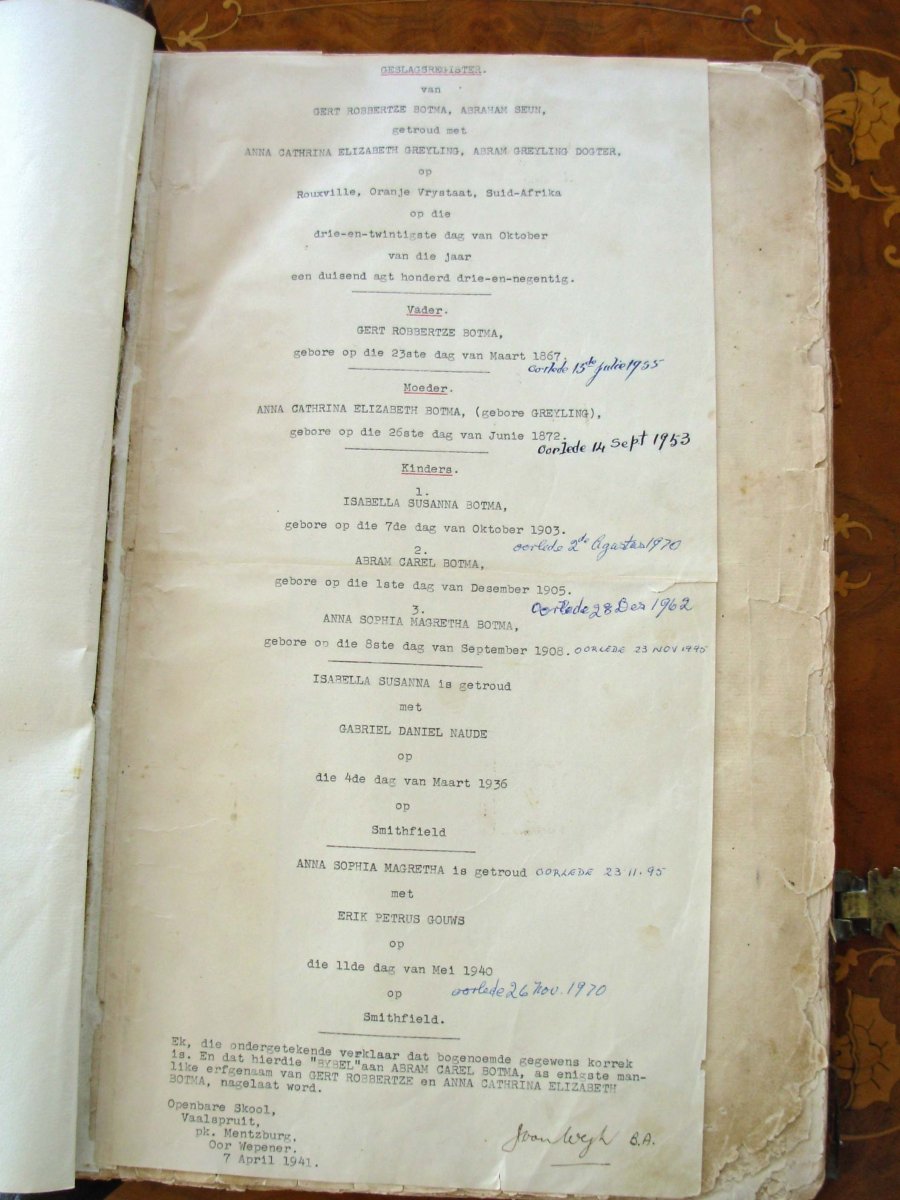 GESLAGSREGISTER.
van
GERT ROBBERTZE BOTMA, ABRAHAM SEUN,
getroud met
ANNA CATHRINA ELIZABETH GREYLING, ABRAM GREYLING DOGTER,
op
Rouxville, Oranje Vrystaat, Suid-Afrika
op die
drie-en-twintigste dag van Oktober
van die jaar
een duisend agt honderd drie-en-negentig.
Vader.
GERT ROBBERTZE BOTMA,
gebore op die 23ste dag van Maart 1867.
oorlede 15de Julie 1955
Moeder.
ANNA CATHRINA ELIZABETH BOTMA, (gebore GREYLING),
gebore op die 26ste dag van Junie 1872.
oorlede 14 Sept 1953
Kinders.
1.
ISABELLA SUSANNA BOTMA,
gebore op die 7de dag van Oktober 1903.
oorlede 2de Agustus 1970
2.
ABRAM CAREL BOTMA,
gebore op die 1ste dag van Desember 1905.
oorlede 28 Des 1962
3.
ANNA SOPHIA MAGRETHA BOTMA,
gebore op die 8ste dag van September 1908. OORLEDE 23 NOV 1995
ISABELLA SUSANNA is getroud
met
GABRIEL DANIEL NAUDE
op
die 4de dag van Maart 1936
op
Smithfield
ANNA SOPHIA MAGRETHA is getroud OORLEDE 23.11.95
met
ERIK PETRUS GOUWS
op
die 11de dag van Mei 1940
op oorlede 26 Nov. 1970
Smithfield.
Ek, die ondergetekende verklaar dat bogenoemde gegewens korrek
is. En dat hierdie "BYBEL" aan ABRAM CAREL BOTMA, as enigste man-
like erfgenaam van GERT ROBBERTZE en ANNA CATHRINA ELIZABETH
BOTMA, nagelaat word.
Openbare Skool,
Vaalspruit,
pk. Mentzburg,
Oor Wepener.
7 April 1941.
B.A.